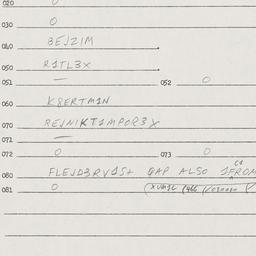 020 0
030 0
040 BEJZIM
050 R1TL3X
051 — 052 0
060 K8ERTM1N
070 REJNIKT1MPOR3X
071 —
072 0 073 0
080 FLEJD3RV1S+ GAP ALSO 1FROM
081 0